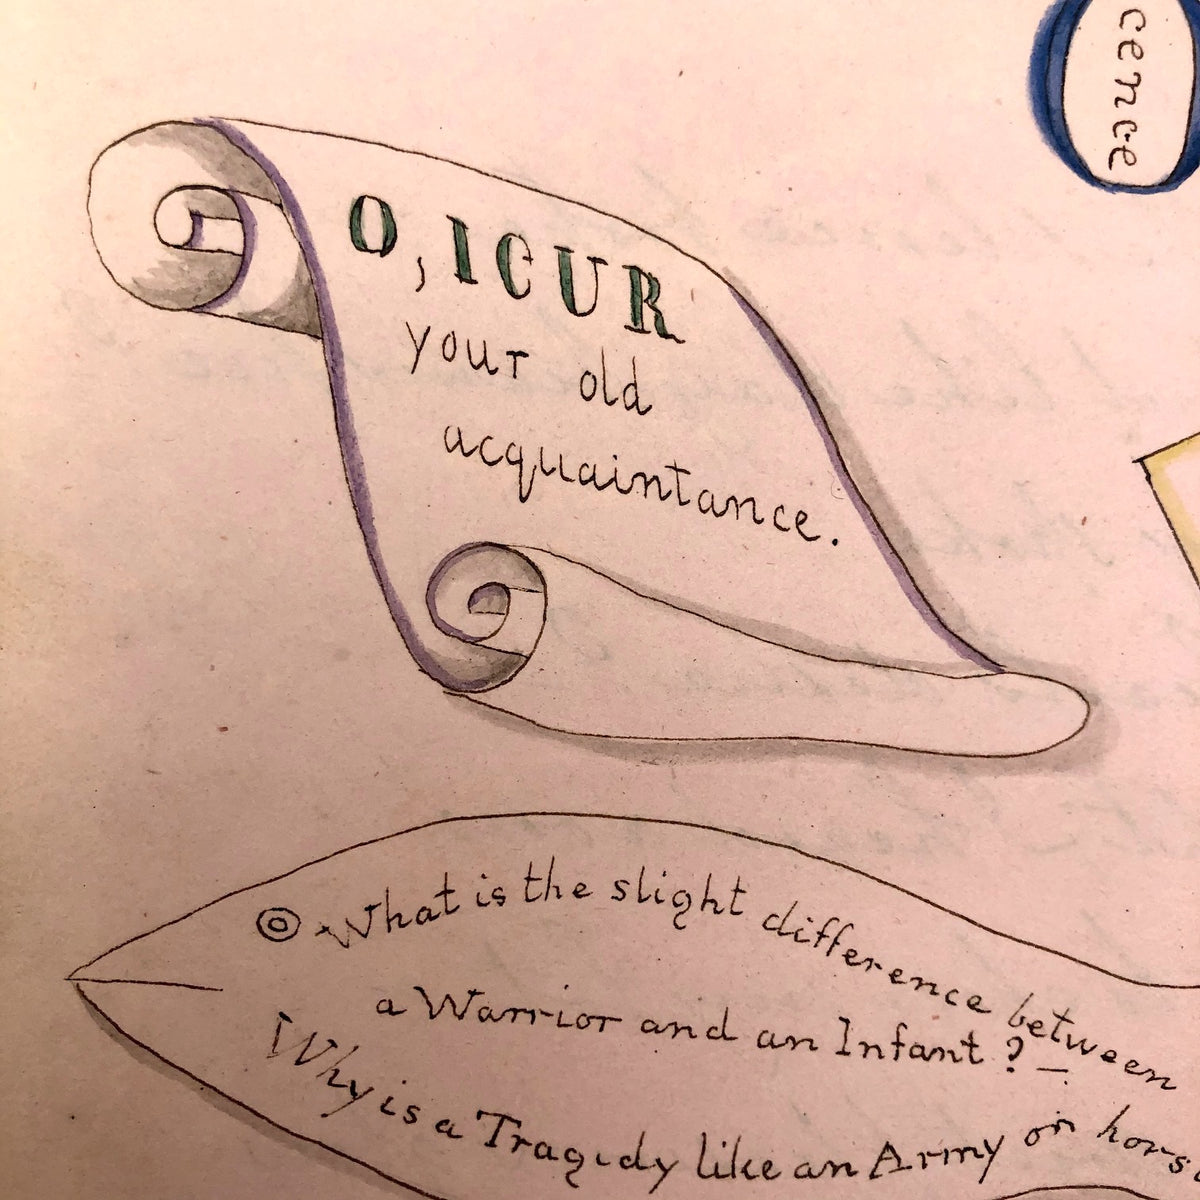 cence
O, ICUR
your old
acquaintance.
What is the slight difference between
a Warrior and an Infant? –
Why is a Tragedy like an Army on hors